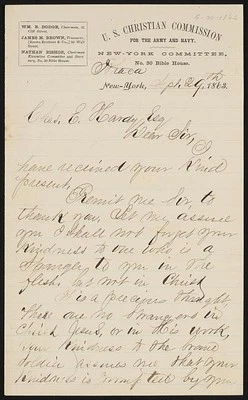 WM. E. DODGE, CHAIRMAN, 21 Cliff Street.
JAMES M. BROWN, TREASURER, (Brown Brothers & Co.,) 59 Wall Street.
NATHAN BISHOP, CHAIRMAN Executive Committee and Secretary, No. 30 Bible House.
U. S. CHRISTIAN COMMISSION
FOR THE ARMY AND NAVY,
NEW-YORK COMMITTEE,
No. 30 Bible House.
Ithaca
New-York, Sept. 29th 1863.
Chas. E. Hardy, Esq
Dear Sir, I
have received your kind
present.
Permit me Sir, to
thank you, let me assure
you I shall not forget your
kindness to one who is a
stranger to you in the
flesh, but not in Christ
'Tis a precious thought,
there are no strangers in
Christ Jesus, or in His work,
your kindness to the brave
soldier assures me that your
kindness is prompted by your